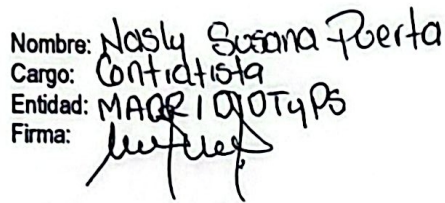 Nombre: Nasly Susana Puerta
Cargo: Contratista
Entidad:
Firma: